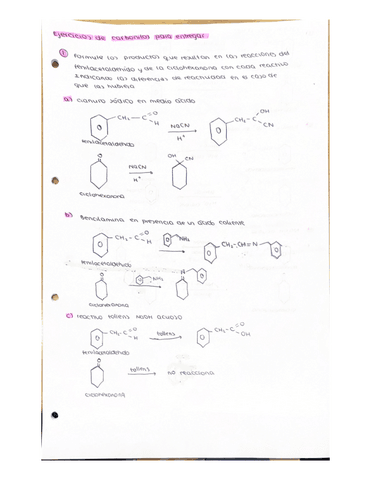 Ejercicios de carbonilos para entregar.
① Formule los productos que resultan en las reacciones del
fenilacetaldehido y de la ciclohexanona con cada reactivo
indicando las diferencias de reactividad en el caso de
que las hubiera
a) cianuro sódico en medio ácido
CH₂-C=O H NaCN H⁺ CH₂-C OH CN
fenilacetaldehido
O NaCN H⁺ OH CN
ciclohexanona
b) Bencilamina en presencia de un ácido caliente
CH₂-C=O H NH₂ CH₂-CH=N
fenilacetaldehido
O NH₂ N
ciclohexanona
c) reactivo tollens NaOH acuoso
CH₂-C=O H tollens CH₂-C=O OH
fenilacetaldehido
O tollens no reacciona
ciclohexanona